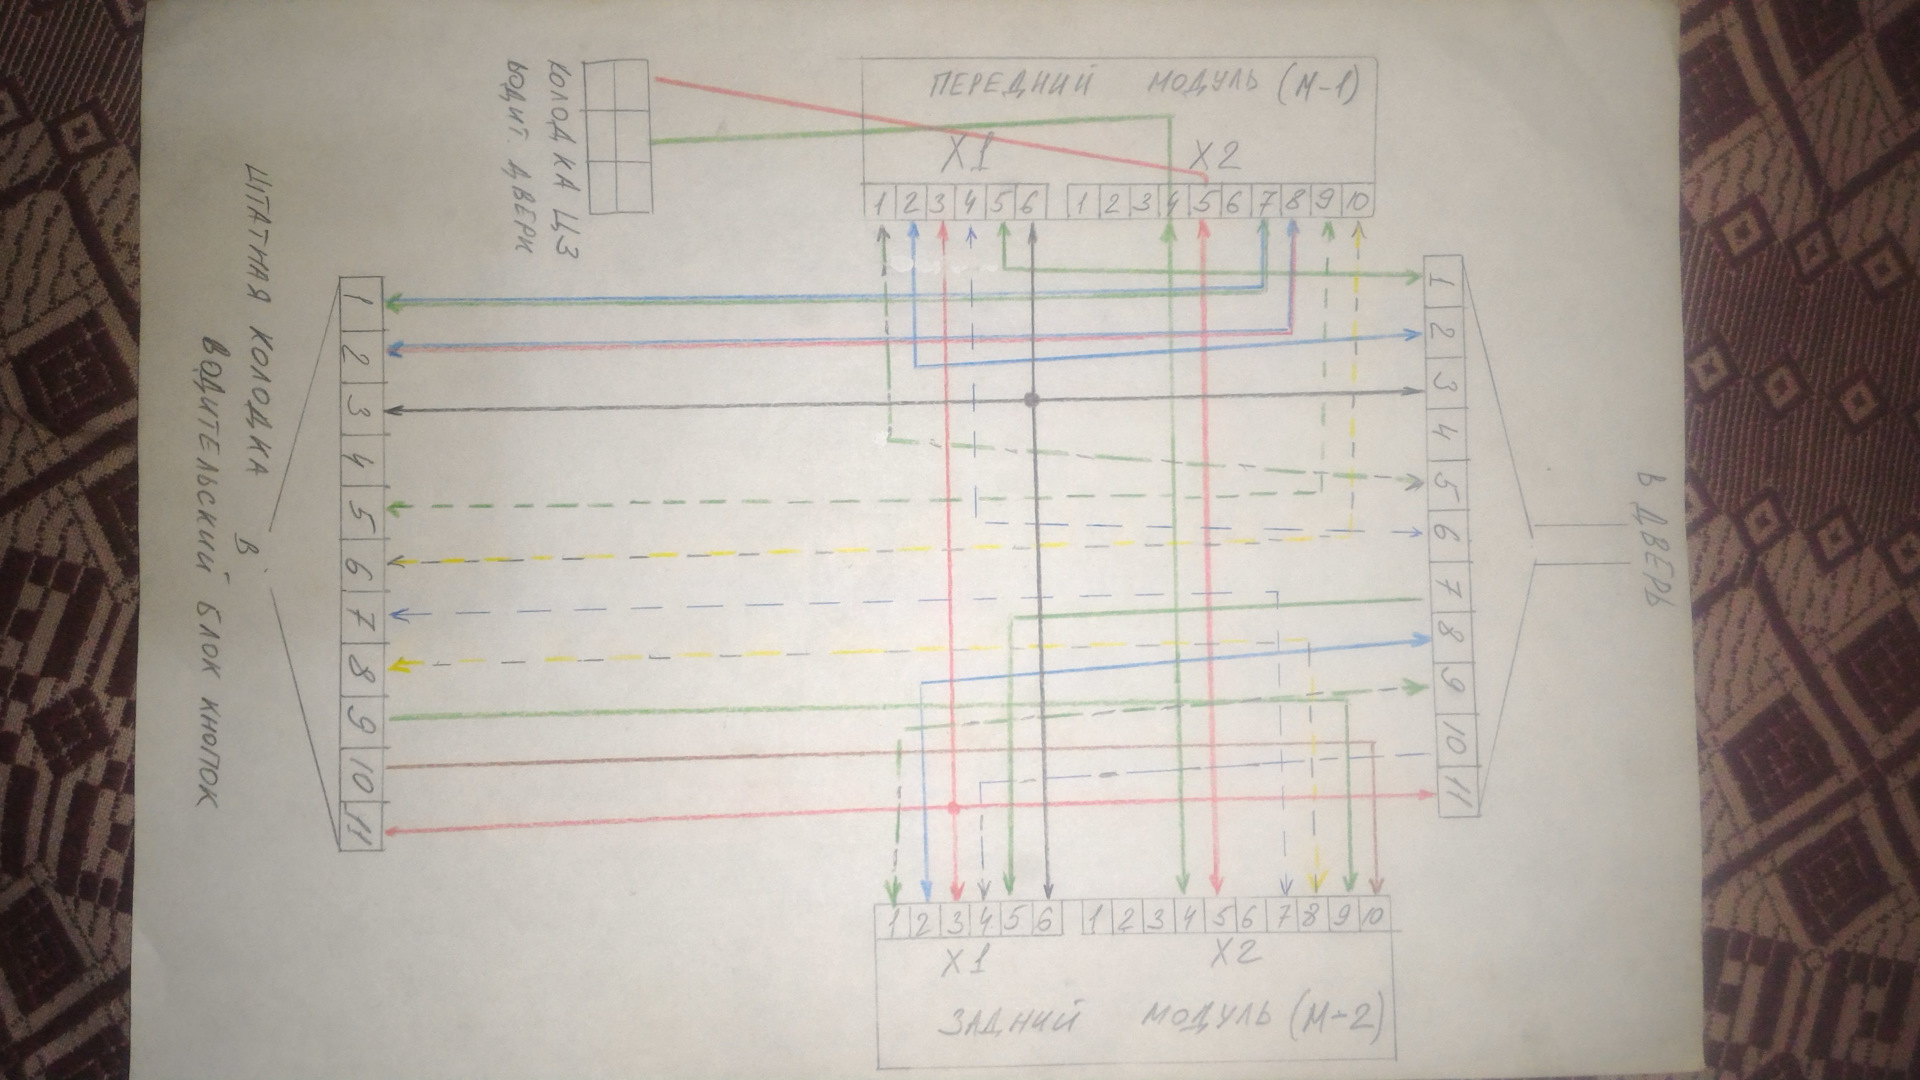 ПЕРЕДНИЙ МОДУЛЬ (М-1)
X1 X2
1 2 3 4 5 6 1 2 3 4 5 6 7 8 9 10
КОЛОДКА ЦЗ
ВОДИТ. ДВЕРИ
ШТАТНАЯ КОЛОДКА В
ВОДИТЕЛЬСКИЙ БЛОК КНОПОК
1
2
3
4
5
6
7
8
9
10
11
1
2
3
4
5
6
7
8
9
10
11
В ДВЕРЬ
1 2 3 4 5 6 1 2 3 4 5 6 7 8 9 10
X1 X2
ЗАДНИЙ МОДУЛЬ (М-2)